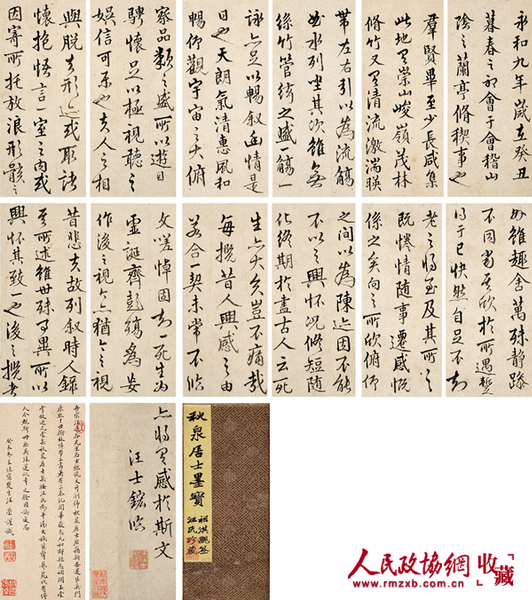 永和九年歲在癸丑
暮春之初會于會稽山
陰之蘭亭脩稧事也
群賢畢至少長咸集
此地有崇山峻嶺茂林
脩竹又有清流激湍映
帶左右引以為流觴
曲水列坐其次雖無
絲竹管絃之盛一觴一
詠亦足以暢叙幽情是
日也天朗氣清惠風和
暢仰觀宇宙之大俯
察品類之盛所以遊目
騁懷足以極視聽之
娛信可樂也夫人之相
與或取諸
懷抱悟言一室之内或
因寄所托放浪形骸之
外雖趣舍萬殊靜躁
不同當其欣於所遇暫
得于己快然自足不知
老之將至及其所之
既惓情隨事遷感慨
係之矣向之所欣俯仰
之間以為陳迹不能
不以之興懷況脩短隨
化終期於盡古人云死
生亦大矣豈不痛哉
每攬昔人興感之由
若合一契未嘗不臨
文嗟悼固知一死生為
虛誕齊彭殤為妄
作後之視今亦猶今之視
昔悲夫故列叙時人錄
其所述雖世殊事異所以
興懷其致一也後之攬者
亦將有感於斯文
汪士鋐臨
秋泉居士墨寶
人民政协網 收藏
www.rmzxb.com.cn